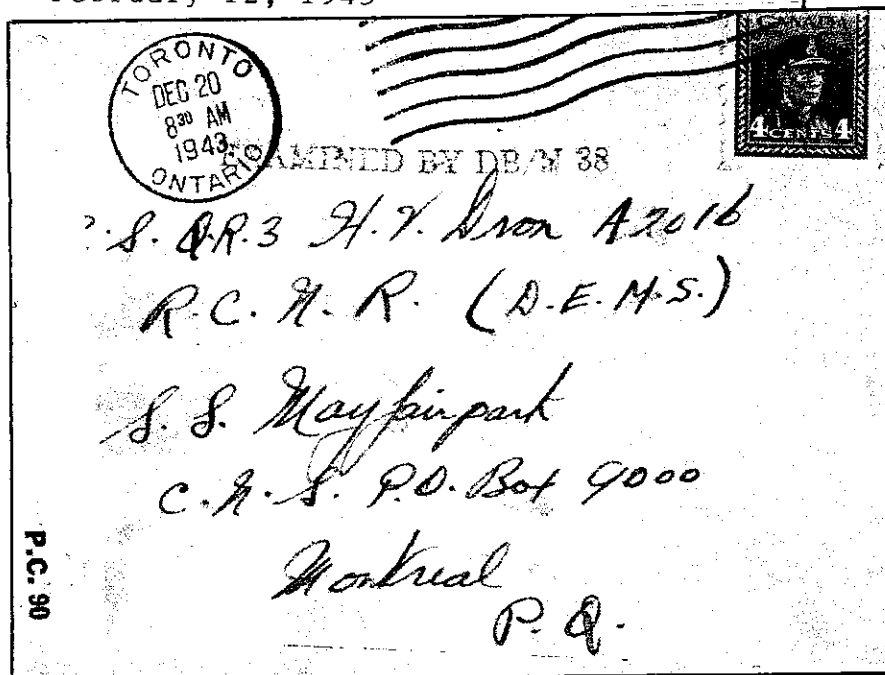 February 12, 1943
TORONTO
DEC 20
8 30 AM
1943
ONTARIO
CANADA
4 CENTS 4
EXAMINED BY DB/N 38
.S. Q.R.3 H.V. Dron A2016
R.C.N.R. (D.E.M.S.)
S.S. Mayfairpark
C.N.S. P.O. Box 9000
Montreal
P.Q.
P.C. 90